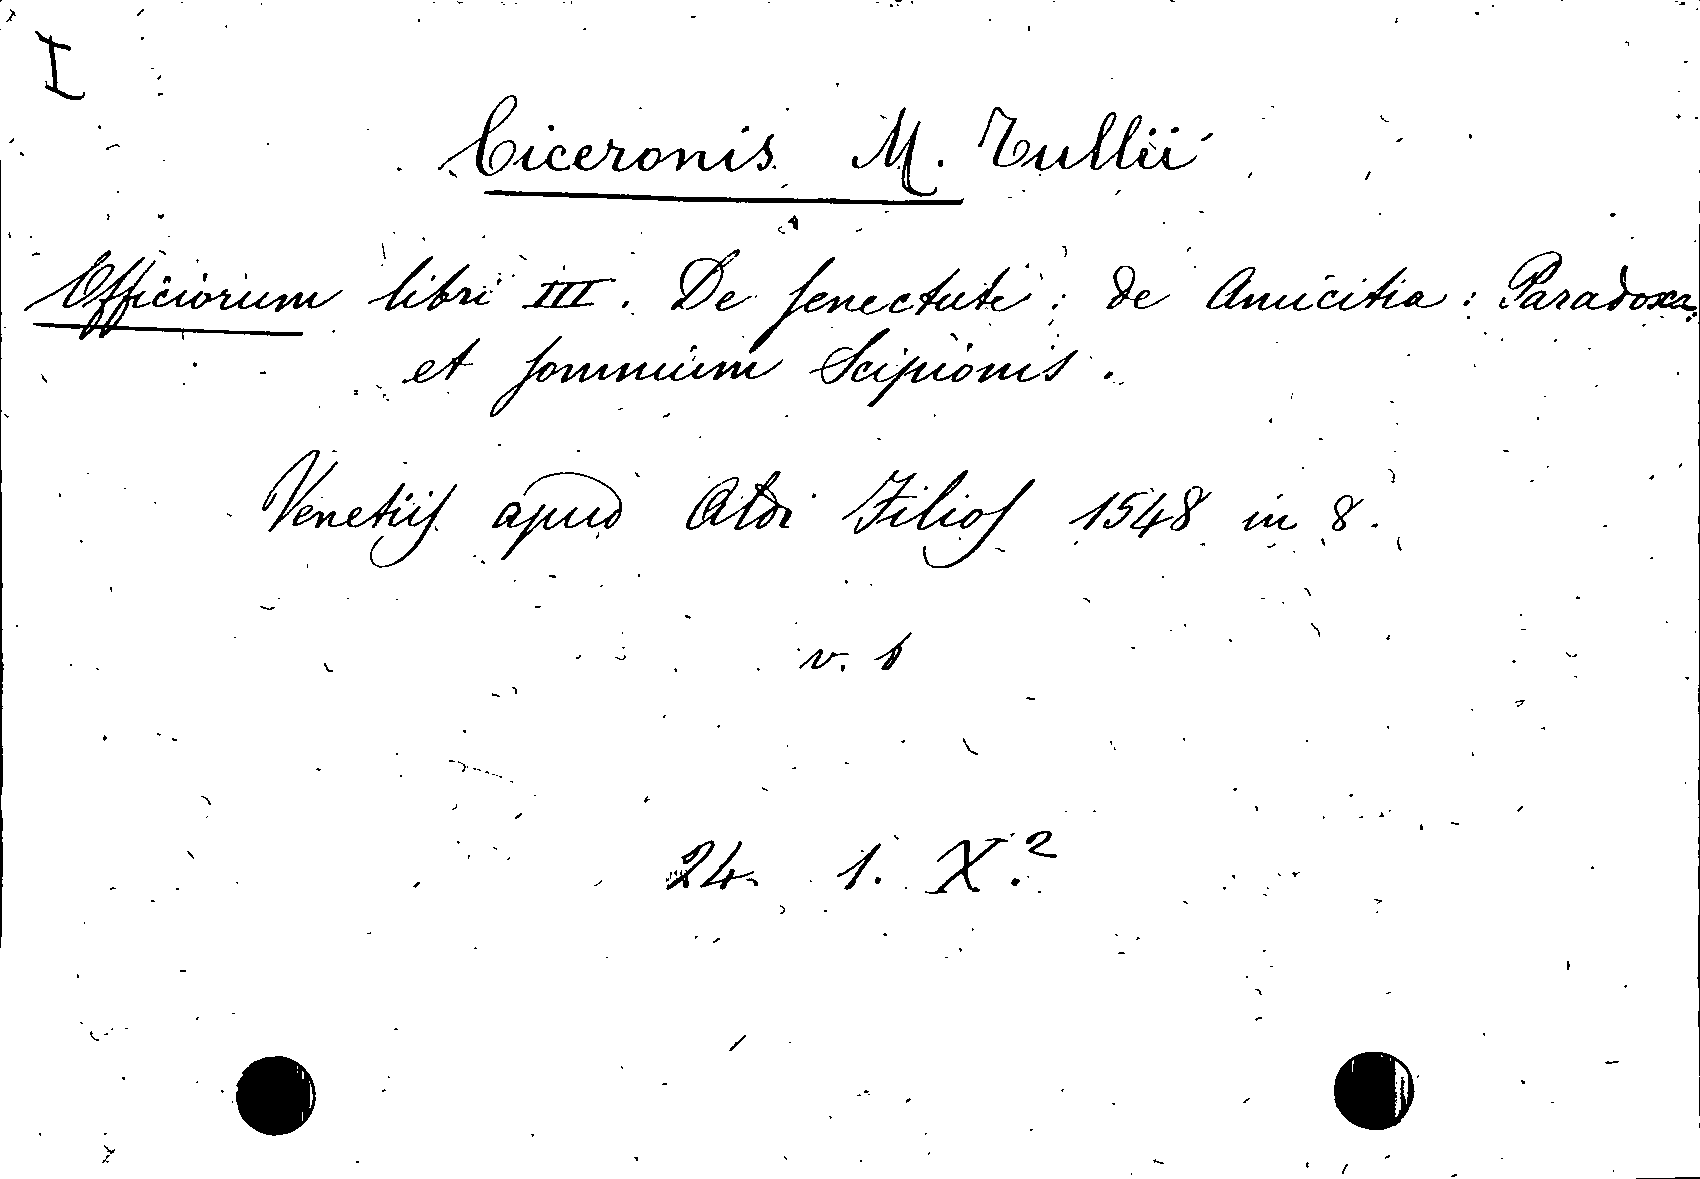 I
Ciceronis M. Tullii
Officiorum libri III. De senectute: de Amicitia: Paradoxa:
et somnium Scipionis.
Venetiis apud Aldi Filios 1548 in 8.
v. 1
24. 1. X.²